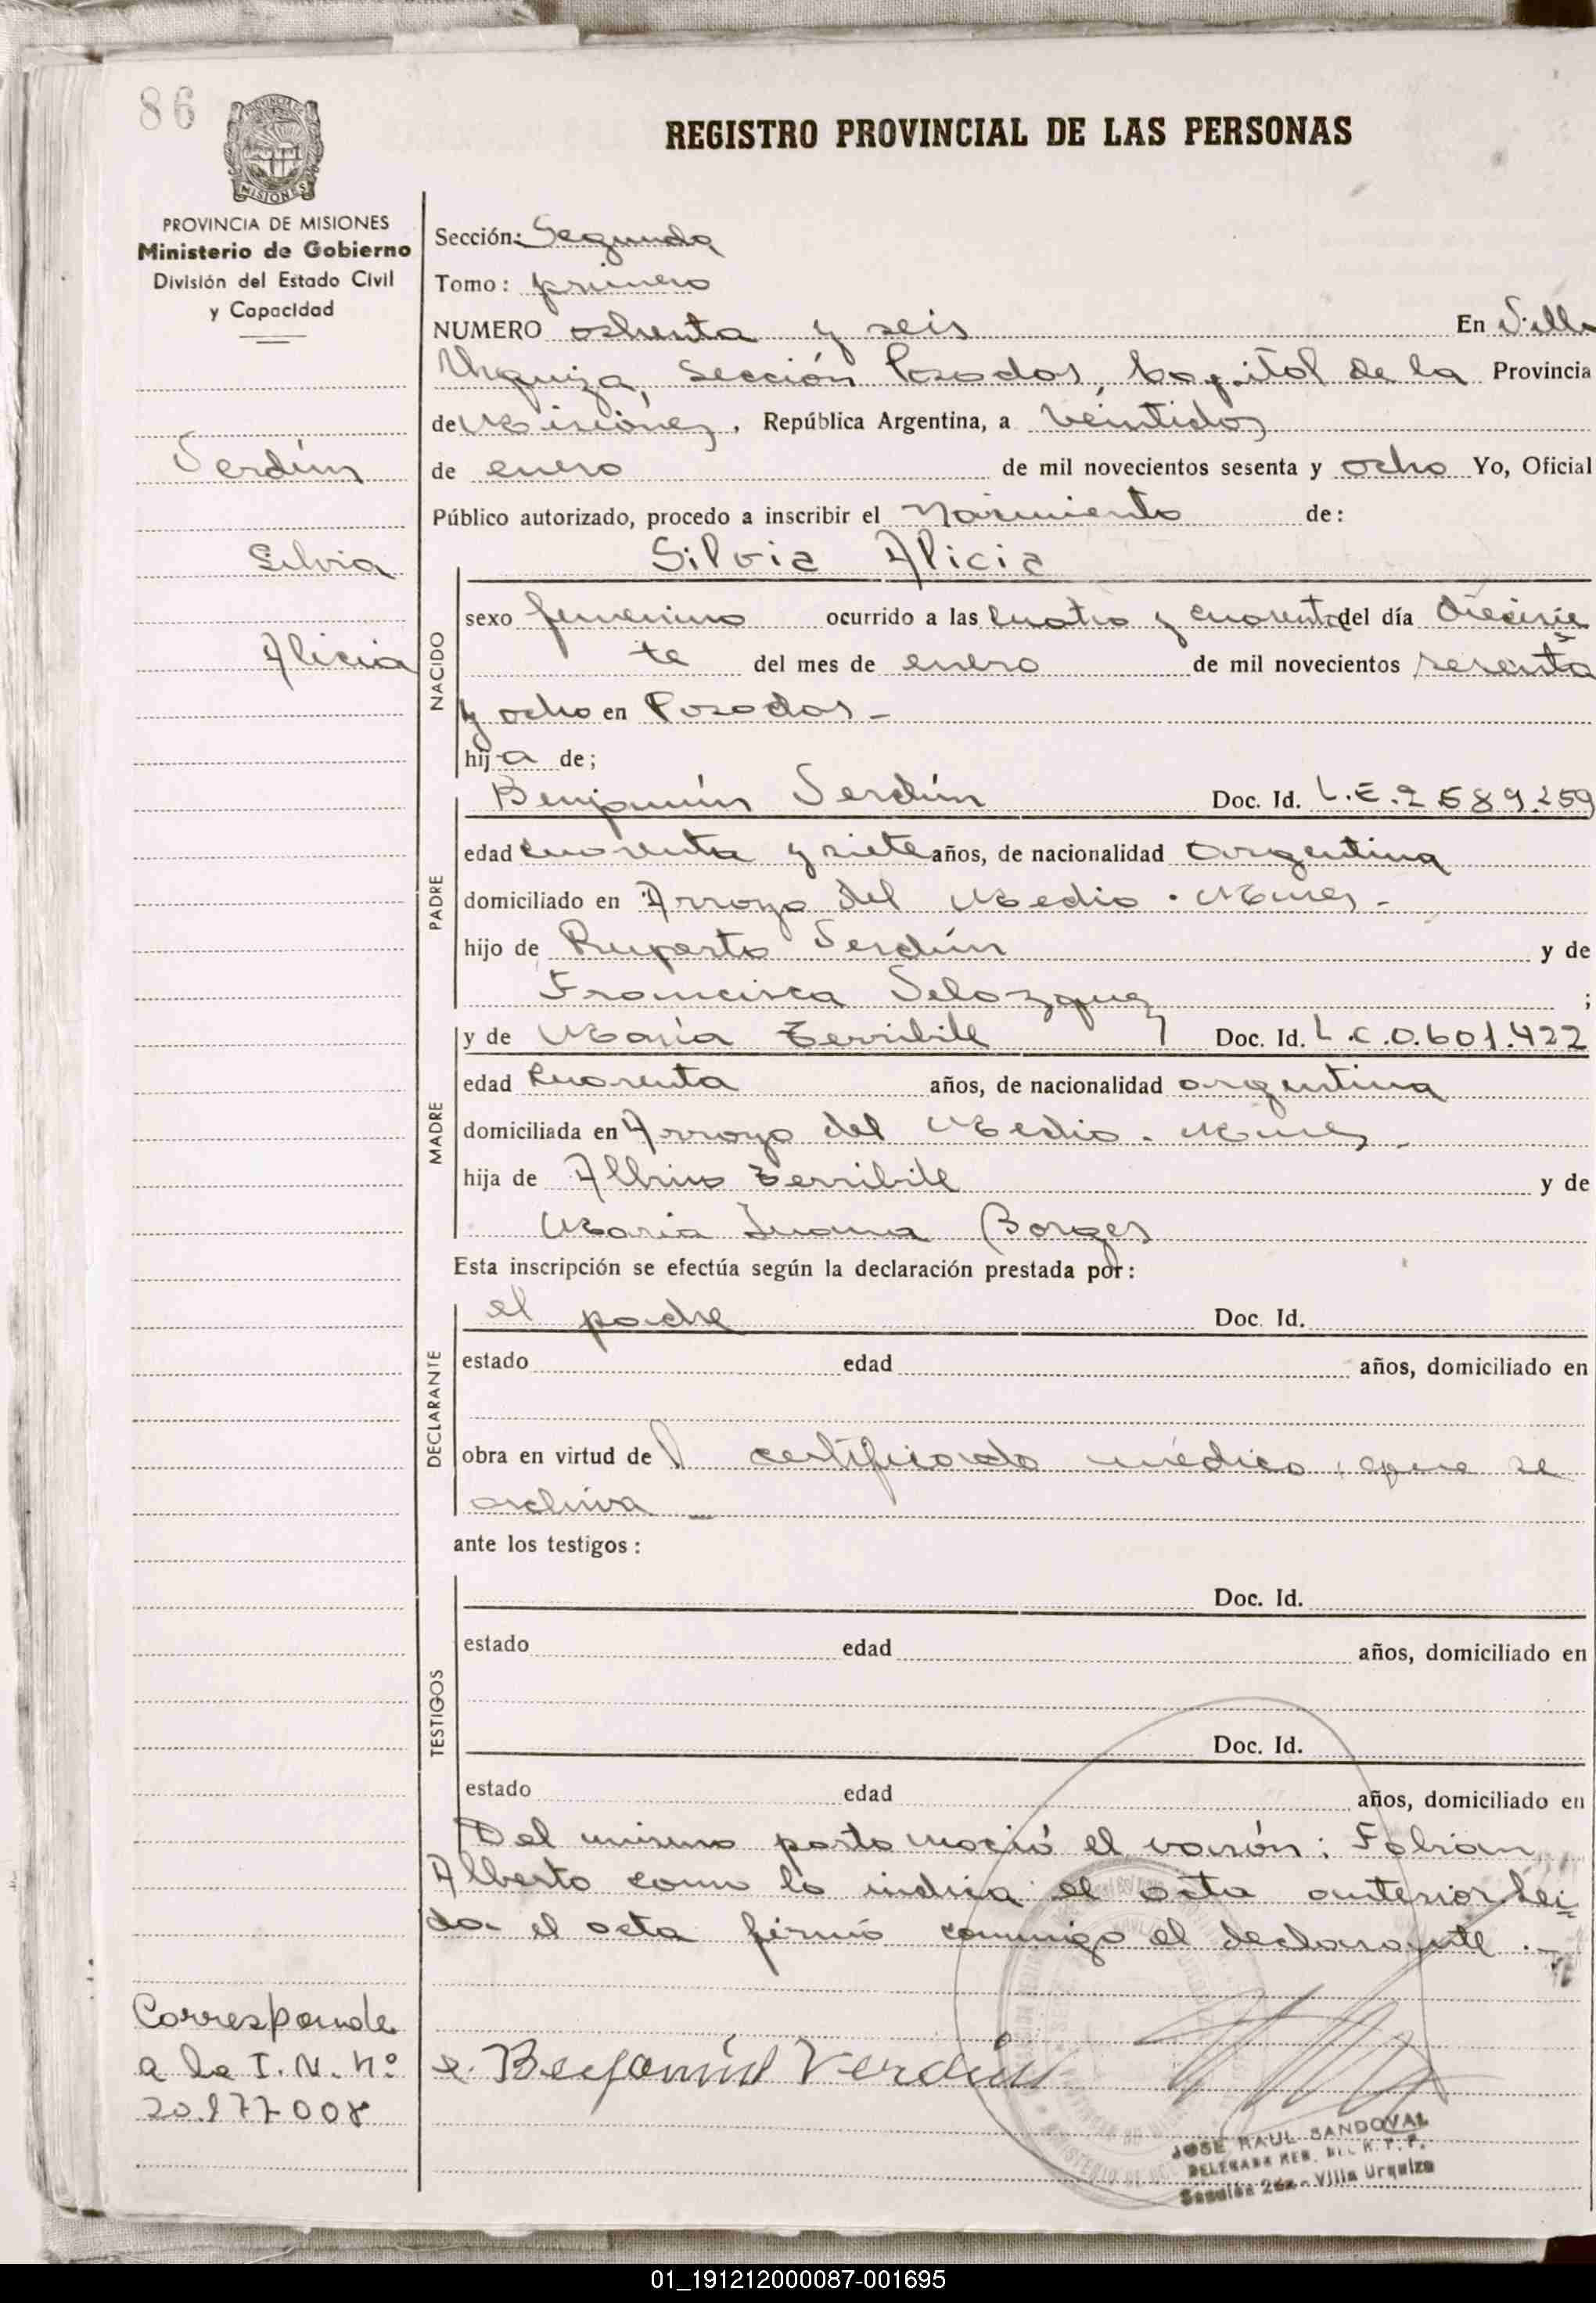 86
REGISTRO PROVINCIAL DE LAS PERSONAS
MISIONES
PROVINCIA DE MISIONES
Ministerio de Gobierno
División del Estado Civil
y Capacidad
Sección: Segunda
Tomo: primero
NUMERO ochenta y seis En Villa
Urquiza, Sección Posadas, Capital de la Provincia
de Misiones, República Argentina, a veintidos
Verdún
de enero de mil novecientos sesenta y ocho Yo, Oficial
Público autorizado, procedo a inscribir el Nacimiento de:
Silvia
Silvia Alicia
Alicia
NACIDO
sexo femenino ocurrido a las cuatro y cuarenta del día diecisie
te del mes de enero de mil novecientos sesenta
y ocho en Posadas -
hija de;
PADRE
Benjamín Verdún Doc. Id. L.E. 2.589.259
edad cuarenta y siete años, de nacionalidad argentina
domiciliado en Arroyo del Medio - Mnes -
hijo de Ruperto Verdún y de
Francisca Velozquez ;
MADRE
y de María Terribile Doc. Id. L.C. 0.601.422
edad cuarenta años, de nacionalidad argentina
domiciliada en Arroyo del Medio - Mnes -
hija de Albino Terribile y de
María Juana Borges
Esta inscripción se efectúa según la declaración prestada por:
DECLARANTE
el padre Doc. Id.
estado edad años, domiciliado en
obra en virtud de l certificado médico, que se
archiva -
ante los testigos:
TESTIGOS
Doc. Id.
estado edad años, domiciliado en
Doc. Id.
estado edad años, domiciliado en
Del mismo parto nació el varón: Fabian
Alberto como lo indica el acta anterior. Lei=
da el acta firmó conmigo el declarante .-
Corresponde
a la I.N. Nº
20.177-008
Benjamín Verdún
JOSE RAUL SANDOVAL
DELEGADO REG. DEL R. P. P.
Sección 2da - Villa Urquiza
01_191212000087-001695